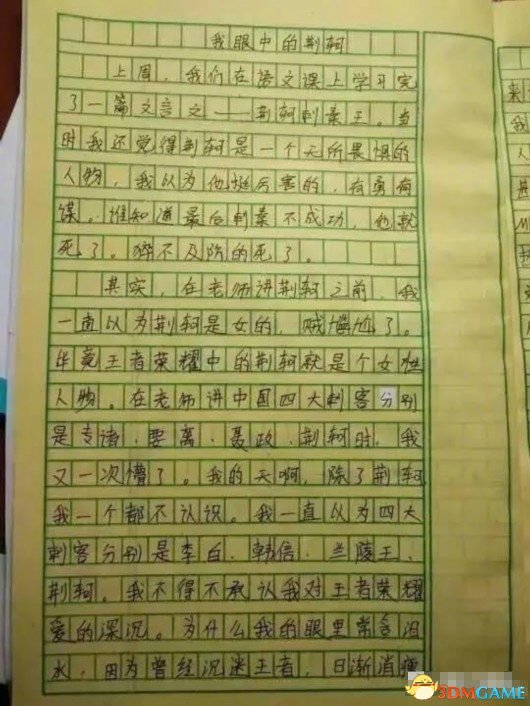 我眼中的荆轲
上周，我们在语文课上学习完
了一篇文言文——荆轲刺秦王。当
时我还觉得荆轲是一个无所畏惧的
人物，我以为他挺厉害的，有勇有
谋。谁知道最后刺秦不成功，他就
死了。猝不及防的死了。
其实，在老师讲荆轲之前，我
一直以为荆轲是女的，贼尴尬了。
毕竟王者荣耀中的荆轲就是个女性
人物。在老师讲中国四大刺客分别
是专诸、要离、聂政、荆轲时，我
又一次懵了。我的天啊，除了荆轲
我一个都不认识。我一直以为四大
刺客分别是李白、韩信、兰陵王、
荆轲。我不得不承认我对王者荣耀
爱的深沉。为什么我的眼里常含泪
水，因为曾经沉迷王者，日渐消瘦
来
我
人
M
3DMGAME